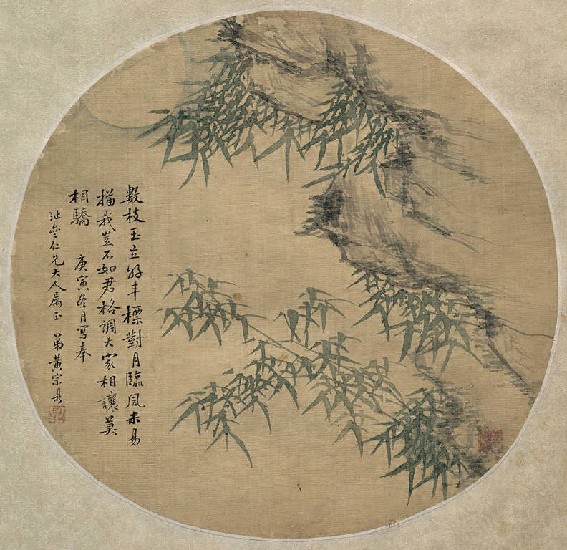 數枝玉立丰標對月臨風未易
描我豈不如君格調大家相讓莫
相驕 庚寅月寫奉
仁兄大人屬正 弟黃宗